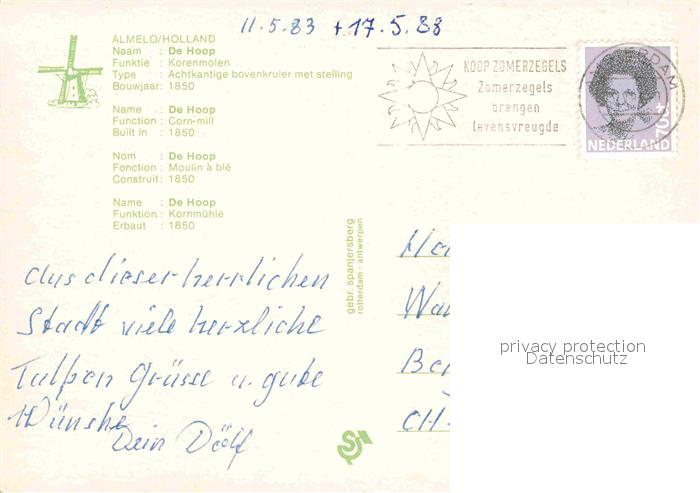 11.5.83 + 17.5.88
ALMELO/HOLLAND
Naam : De Hoop
Funktie : Korenmolen
Type : Achtkantige bovenkruier met stelling
Bouwjaar: 1850
Name : De Hoop
Function : Corn-mill
Built in : 1850
Nom : De Hoop
Fonction : Moulin à blé
Construit : 1850
Name : De Hoop
Funktion : Kornmühle
Erbaut : 1850
KOOP ZOMERZEGELS
Zomerzegels
brengen
levensvreugde
DAM
70c
NEDERLAND
gebr. spanjersberg
rotterdam - antwerpen
aus dieser herrlichen
Stadt viele herzliche
Tulpen Grüsse u. gute
Wünsche
Dein Dölf
CH-
privacy protection
Datenschutz